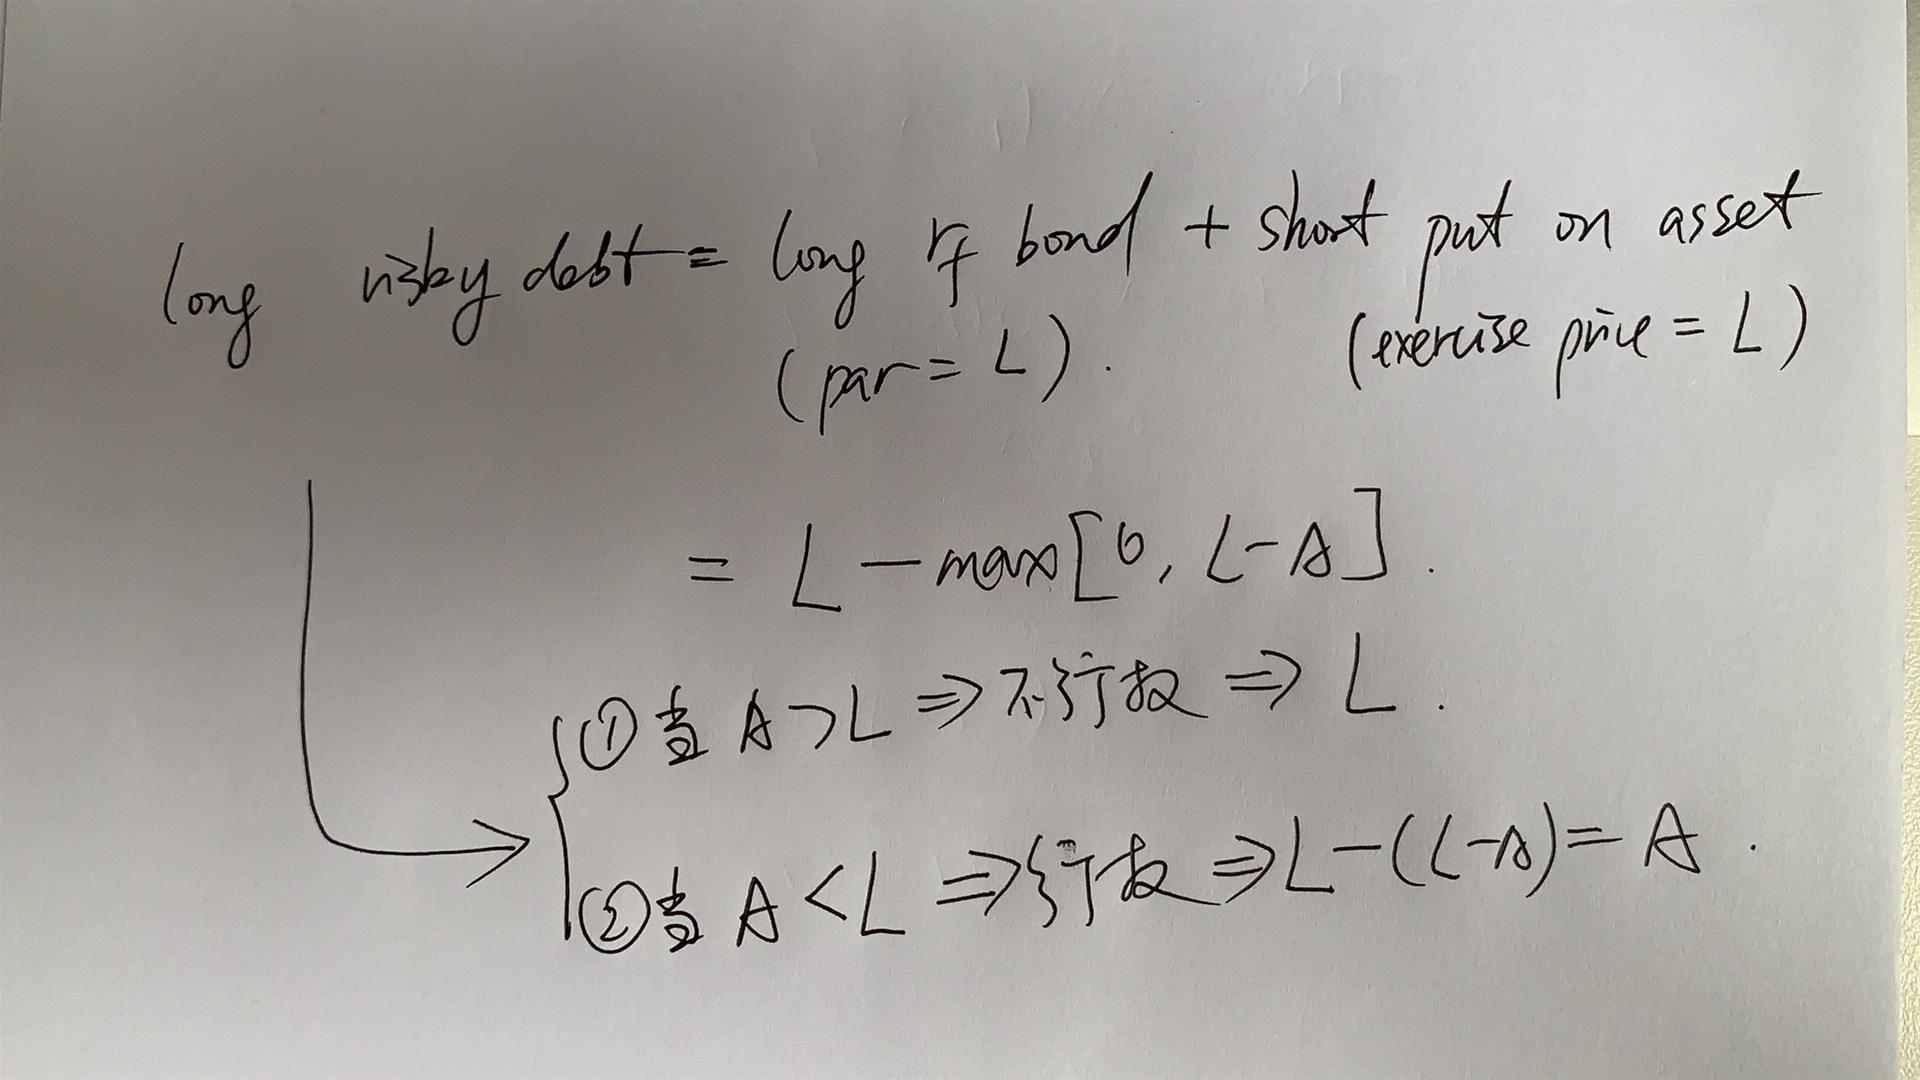 long risky debt = long rf bond + short put on asset
(par = L). (exercise price = L)
= L - max[0, L-A].
① 当 A > L ⇒ 不行权 ⇒ L.
② 当 A < L ⇒ 行权 ⇒ L-(L-A) = A.